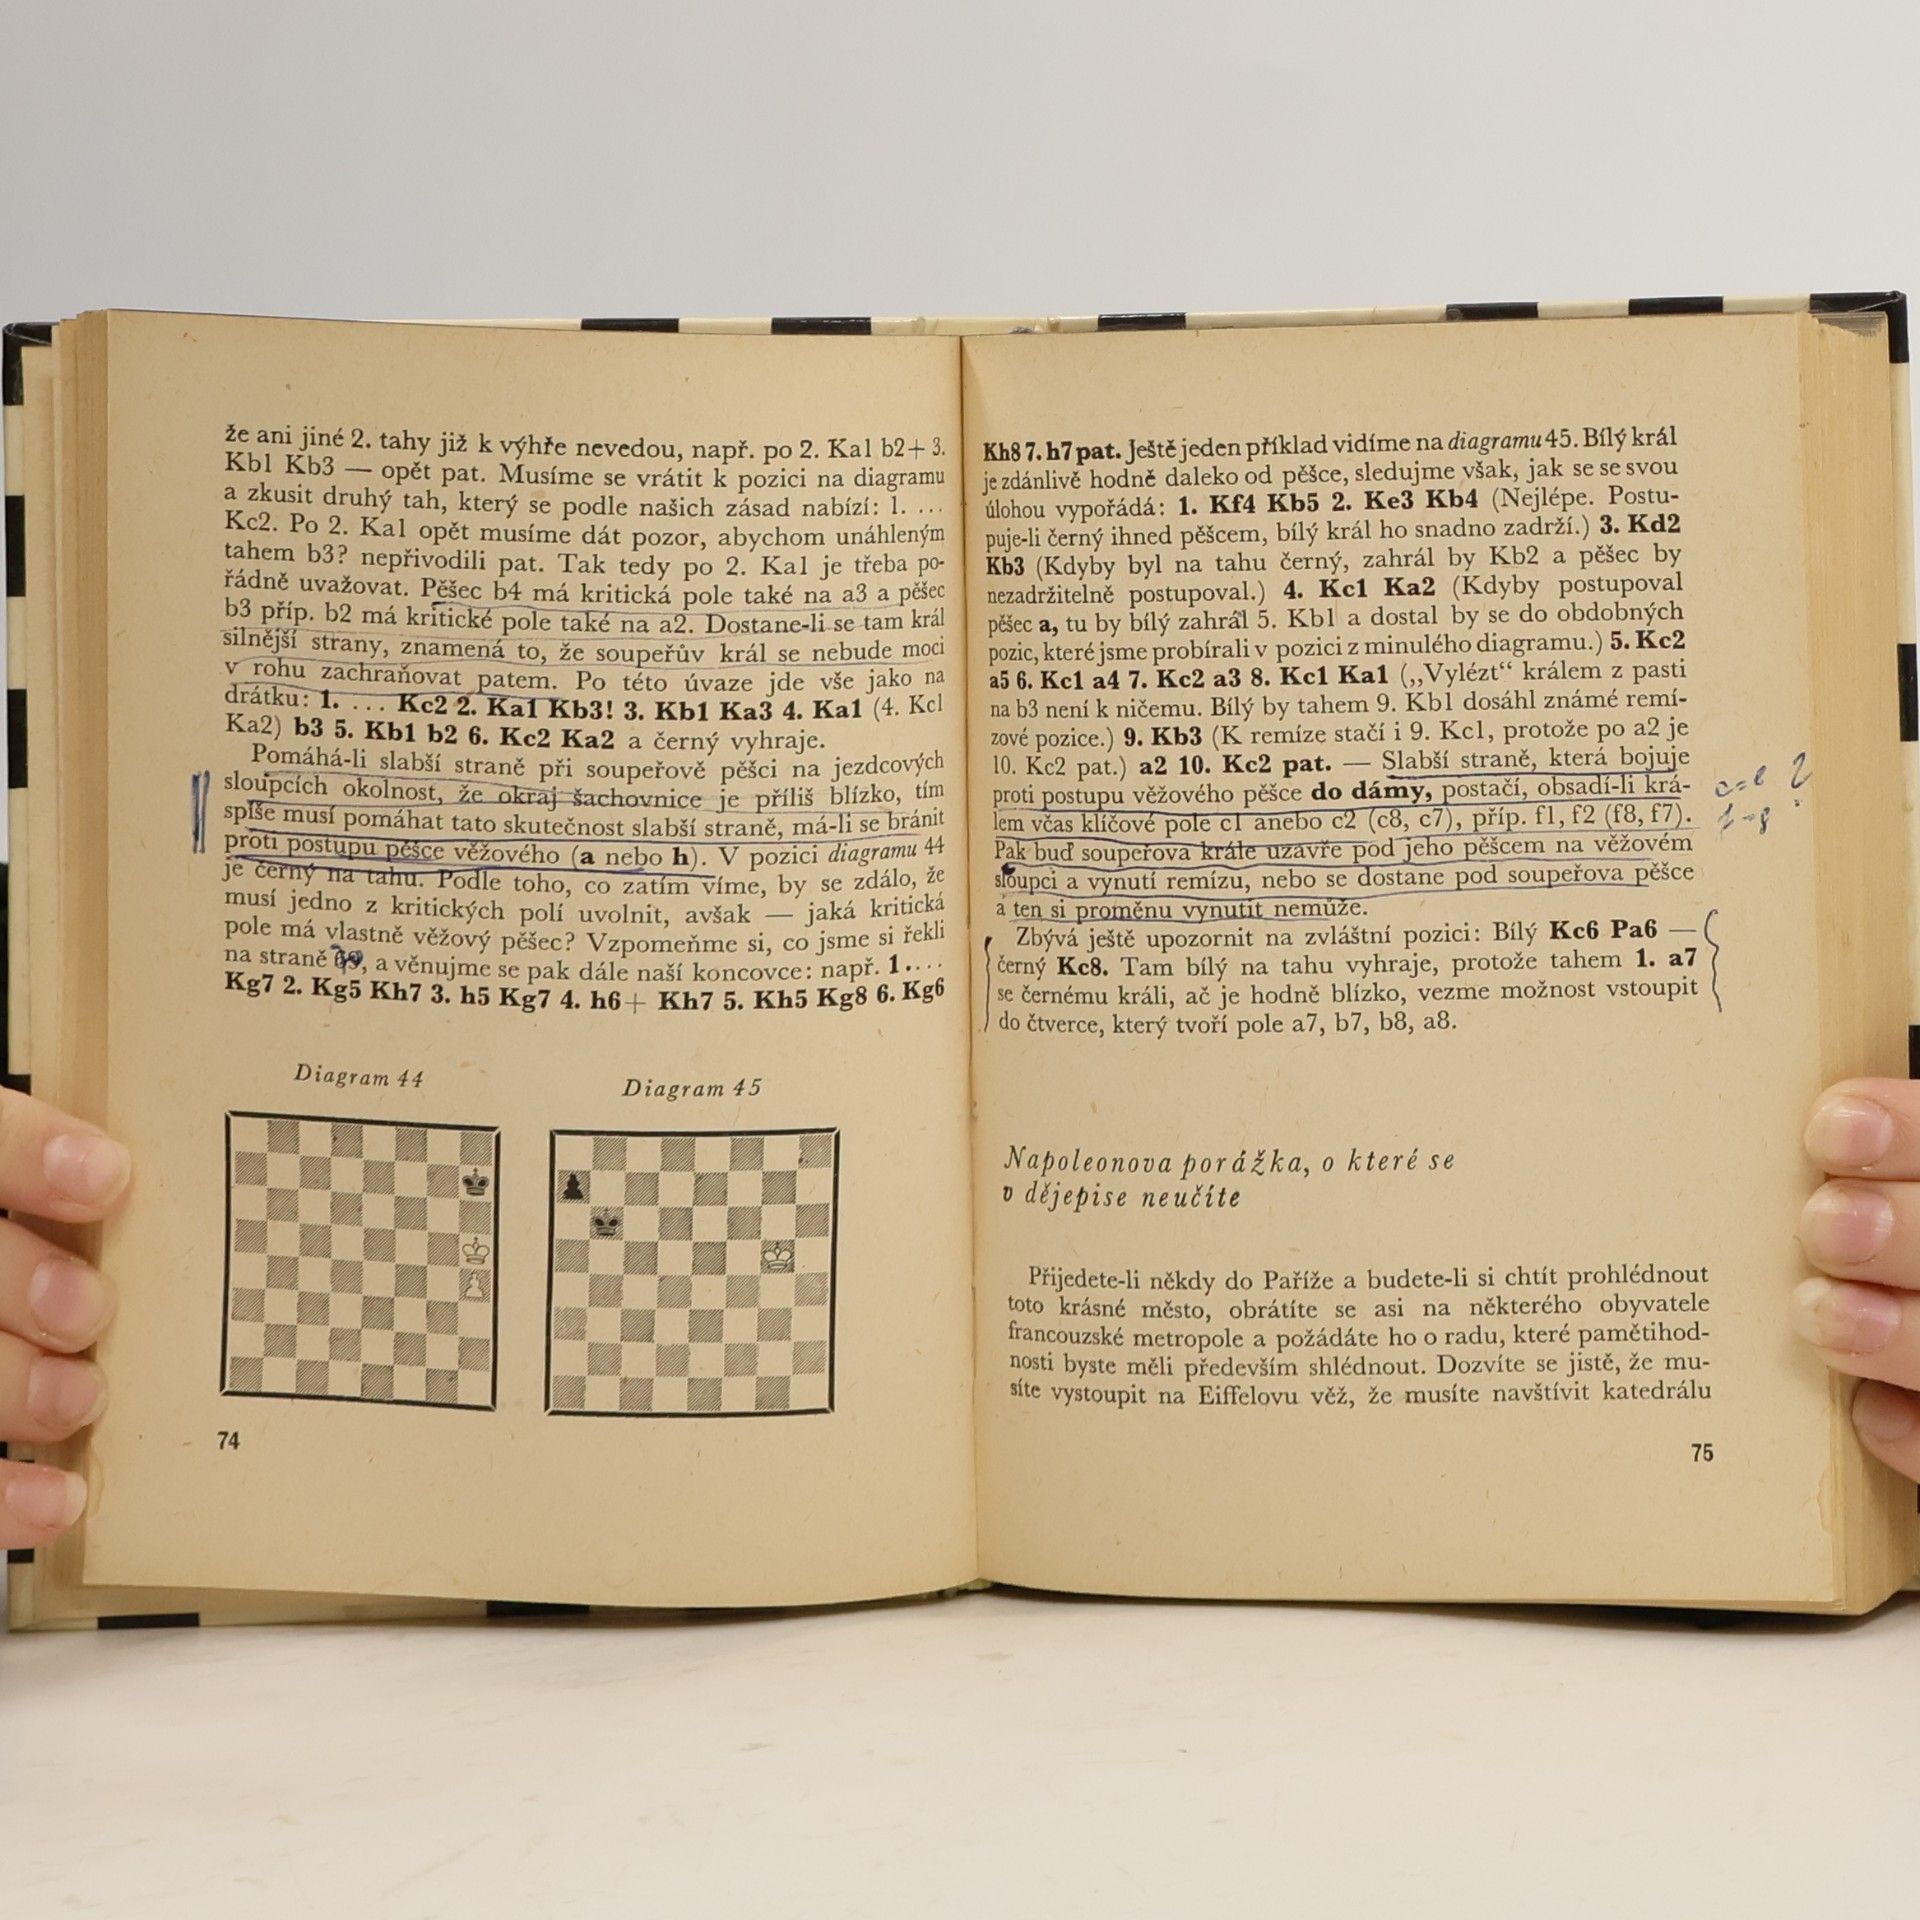 že ani jiné 2. tahy již k výhře nevedou, např. po 2. Ka1 b2+ 3.
Kb1 Kb3 — opět pat. Musíme se vrátit k pozici na diagramu
a zkusit druhý tah, který se podle našich zásad nabízí: 1. ...
Kc2. Po 2. Ka1 opět musíme dát pozor, abychom unáhleným
tahem b3? nepřivodili pat. Tak tedy po 2. Ka1 je třeba po-
řádně uvažovat. Pěšec b4 má kritická pole také na a3 a pěšec
b3 příp. b2 má kritické pole také na a2. Dostane-li se tam král
silnější strany, znamená to, že soupeřův král se nebude moci
v rohu zachraňovat patem. Po této úvaze jde vše jako na
drátku: 1. ... Kc2 2. Ka1 Kb3! 3. Kb1 Ka3 4. Ka1 (4. Kc1
Ka2) b3 5. Kb1 b2 6. Kc2 Ka2 a černý vyhraje.
Pomáhá-li slabší straně při soupeřově pěšci na jezdcových
sloupcích okolnost, že okraj šachovnice je příliš blízko, tím
spíše musí pomáhat tato skutečnost slabší straně, má-li se bránit
proti postupu pěšce věžového (a nebo h). V pozici diagramu 44
je černý na tahu. Podle toho, co zatím víme, by se zdálo, že
musí jedno z kritických polí uvolnit, avšak — jaká kritická
pole má vlastně věžový pěšec? Vzpomeňme si, co jsme si řekli
na straně , a věnujme se pak dále naší koncovce: např. 1....
Kg7 2. Kg5 Kh7 3. h5 Kg7 4. h6+ Kh7 5. Kh5 Kg8 6. Kg6
Diagram 44
Diagram 45
74
Kh8 7. h7 pat. Ještě jeden příklad vidíme na diagramu 45. Bílý král
je zdánlivě hodně daleko od pěšce, sledujme však, jak se se svou
úlohou vypořádá: 1. Kf4 Kb5 2. Ke3 Kb4 (Nejlépe. Postu-
puje-li černý ihned pěšcem, bílý král ho snadno zadrží.) 3. Kd2
Kb3 (Kdyby byl na tahu černý, zahrál by Kb2 a pěšec by
nezadržitelně postupoval.) 4. Kc1 Ka2 (Kdyby postupoval
pěšec a, tu by bílý zahrál 5. Kb1 a dostal by se do obdobných
pozic, které jsme probírali v pozici z minulého diagramu.) 5. Kc2
a5 6. Kc1 a4 7. Kc2 a3 8. Kc1 Ka1 („Vylézt“ králem z pasti
na b3 není k ničemu. Bílý by tahem 9. Kb1 dosáhl známé remí-
zové pozice.) 9. Kb3 (K remíze stačí i 9. Kc1, protože po a2 je
10. Kc2 pat.) a2 10. Kc2 pat. — Slabší straně, která bojuje
proti postupu věžového pěšce do dámy, postačí, obsadí-li krá-
lem včas klíčové pole c1 anebo c2 (c8, c7), příp. f1, f2 (f8, f7).
Pak buď soupeřova krále uzavře pod jeho pěšcem na věžovém
sloupci a vynutí remízu, nebo se dostane pod soupeřova pěšce
a ten si proměnu vynutit nemůže.
Zbývá ještě upozornit na zvláštní pozici: Bílý Kc6 Pa6 —
černý Kc8. Tam bílý na tahu vyhraje, protože tahem 1. a7
se černému králi, ač je hodně blízko, vezme možnost vstoupit
do čtverce, který tvoří pole a7, b7, b8, a8.
Napoleonova porážka, o které se
v dějepise neučíte
Přijedete-li někdy do Paříže a budete-li si chtít prohlédnout
toto krásné město, obrátíte se asi na některého obyvatele
francouzské metropole a požádáte ho o radu, které pamětihod-
nosti byste měli především shlédnout. Dozvíte se jistě, že mu-
síte vystoupit na Eiffelovu věž, že musíte navštívit katedrálu
75